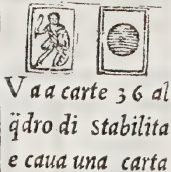 V a a carte 3 6 al
q̈dro di stabilita
e caua una carta